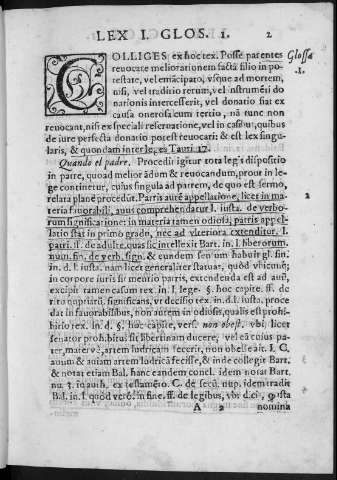 LEX I. GLOS. 1. 2
COLLIGES ex hoc tex. Posse parentes
Glossa
1.
reuocare meliorationem factā filio in po-
testate, vel emācipato, vsque ad mortem,
nisi, vel traditio rerum, vel instrumēti do
nationis intercesserit, vel donatio fiat ex
causa onerosa cum tertio, nā tunc non
reuocant, nisi ex speciali reseruatione, vel in casibus, quibus
de iure perfecta donatio potest reuocari: & est lex singu-
laris, & quondam inter leges Tauri 17.
Quando el padre. Procedit igitur tota legis dispositio
in patre, quoad meliorādum & reuocandum, prout in le-
ge continetur, cuius singula ad patrem, de quo est sermo,
relata planè procedūt. Patris autē appellatione, licet in ma-
2
teria fauorabili, auus comprehendatur l. iusta. de verbo-
rum significatione: in materia ramen odiosa, patris appel-
latio stat in primo gradu, nec ad vlteriora extenditur. l.
patri. ff. de adulte. quas sic intellexit Bart. in l. liberorum.
num. fin. de verb. sign. & eundem sensum habuit gl. fin.
in. d. l. iusta. nam licet generaliter statuat, quòd vbicunq;
in corpore iuris sit mentio patris, extendenda est ad auū,
excipit ramen casum tex. in l. lege. §. hoc capite. ff. de
ritu nuptiarū, significans, vt decisio tex. in. d. l. iusta. proce
dat in fauorabilibus, non autem in odiosis, qualis est prohi-
bitio tex. in d. §. hoc capite, vers. non obest. vbi, licet
senator prohibitus sit libertinam ducere, vel eā cuius pa-
ter, mater vè, artem ludricam fecerit, non obesse ait. I. C.
auum & auiam artem ludicrā fecisse, & inde collegit Bart.
& notat etiam Bal. hanc eandem concl. idem notat Bart.
nu. 3. in auth. ex testamēto. C. de secū. nup. idem tradit
Bal. in l. quòd verò. in fine. ff. de legibus, vbi dicit,
A 2 nomina